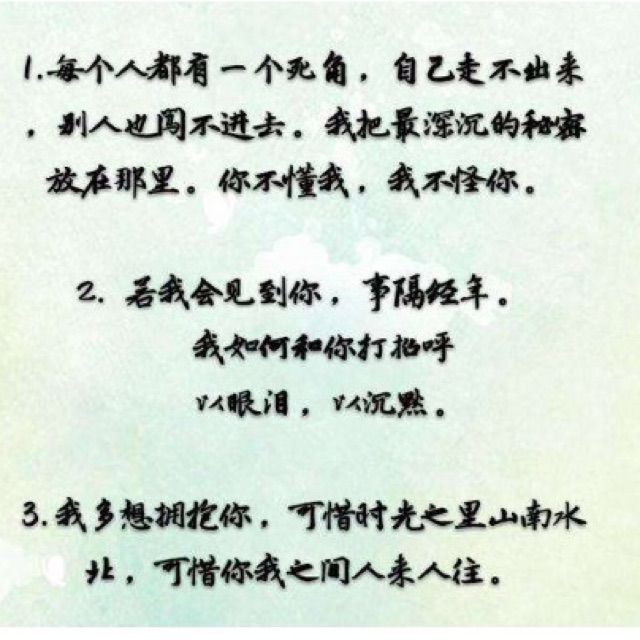 1.每个人都有一个死角，自己走不出来
，别人也闯不进去。我把最深沉的秘密
放在那里。你不懂我，我不怪你。
2. 若我会见到你，事隔经年。
我如何和你打招呼
以眼泪，以沉默。
3.我多想拥抱你，可惜时光之里山南水
北，可惜你我之间人来人往。